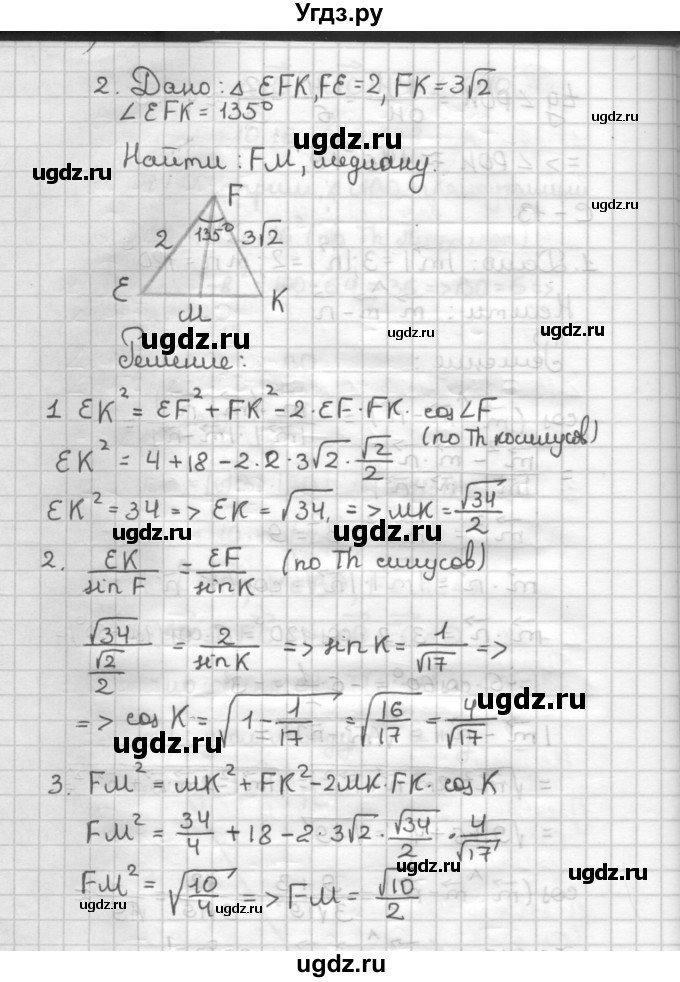 Угдз.ру
2. Дано: △ EFK, FE = 2, FK = 3√2
∠EFK = 135°
ugdz.ru
ugdz.ru
ugdz.ru
Найти: FM, медиану.
F
2 135° 3√2
E M K
ugdz.ru
ugdz.ru
ugdz.ru
ugdz.ru
Решение:
1 EK² = EF² + FK² - 2·EF·FK· cos∠F
(по Th косинусов)
EK² = 4 + 18 - 2·2·3√2·√2/2
EK² = 34 => EK = √34, => MK = √34/2
ugdz.ru
ugdz.ru
2. EK/sin F = EF/sin K (по Th синусов)
√34/(√2/2) = 2/sin K => sin K = 1/√17 =>
ugdz.ru
=> cos K = √(1 - 1/17) = √(16/17) = 4/√17
ugdz.ru
3. FM² = MK² + FK² - 2MK·FK· cos K
FM² = 34/4 + 18 - 2·3√2·√34/2·4/√17
ugdz.ru
ugdz.ru
FM² = √(10/4) => FM = √10/2
ugdz.ru
ugdz.ru
ugdz.ru